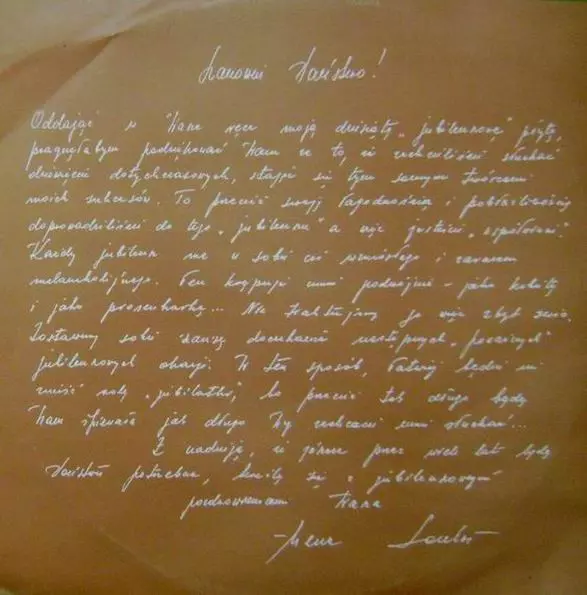 Szanowni Państwo!
Oddając w Wasze ręce moją dziesiątą „jubileuszową” płytę,
pragnęłabym podziękować Wam za to, iż zechcieliście słuchać
dziewięciu dotychczasowych, stając się tym samym twórcami
moich sukcesów. To przecież swoją łagodnością i pobłażliwością
doprowadziliście do tego „jubileuszu” a więc jesteście „współwinni”.
Każdy jubileusz ma w sobie coś wzniosłego i zarazem
melancholijnego. Ten krępuje mnie podwójnie - jako kobietę
i jako piosenkarkę... Nie traktujmy go więc zbyt serio.
Zostawmy sobie szansę doczekania następnych „poważnych”
jubileuszowych okazji. W ten sposób, łatwiej będzie mi
znieść rolę „jubilatki”, bo przecież tak długo będę
Wam śpiewać jak długo Wy zechcecie mnie słuchać...
Z nadzieją, że jeszcze przez wiele lat będę
Państwu potrzebna, kreślę się z jubileuszowymi
pozdrowieniami Wasza
Irena Santor